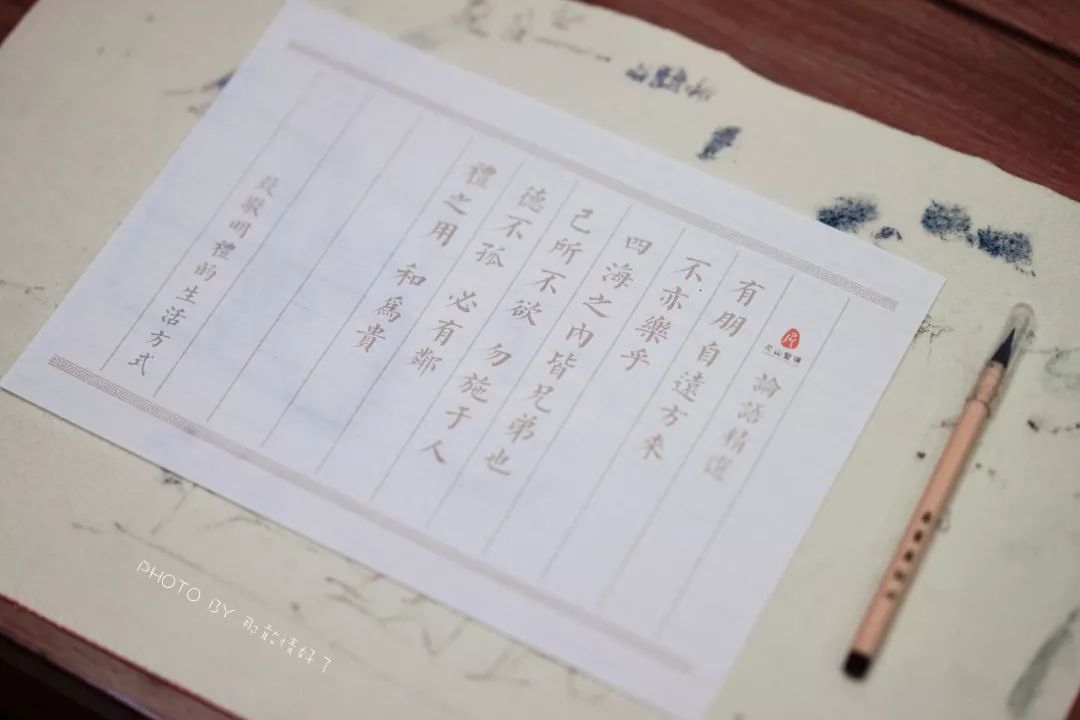 尼山聖境
論語精選
有朋自遠方來
不亦樂乎
四海之內皆兄弟也
己所不欲 勿施于人
德不孤 必有鄰
禮之用 和為貴
明禮的生活方式
PHOTO BY 那敢情好了